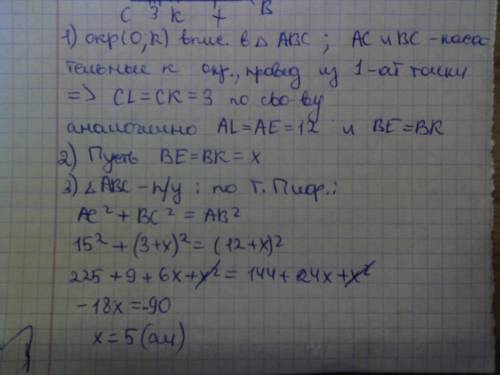 С 3 К 7 В
1) окр(О,R) впис. в △ ABC ; AC и BC - каса-
тельные к окр., провед из 1-ой точки
=> CL=CK=3 по св-ву
аналогично AL=AE=12 и BE=BK
2) Пусть BE=BK=x
3) △ABC - п/у ; по т. Пиф.:
AC² + BC² = AB²
15² + (3+x)² = (12+x)²
225 + 9 + 6x + x² = 144 + 24x + x²
-18x = -90
x = 5 (см)